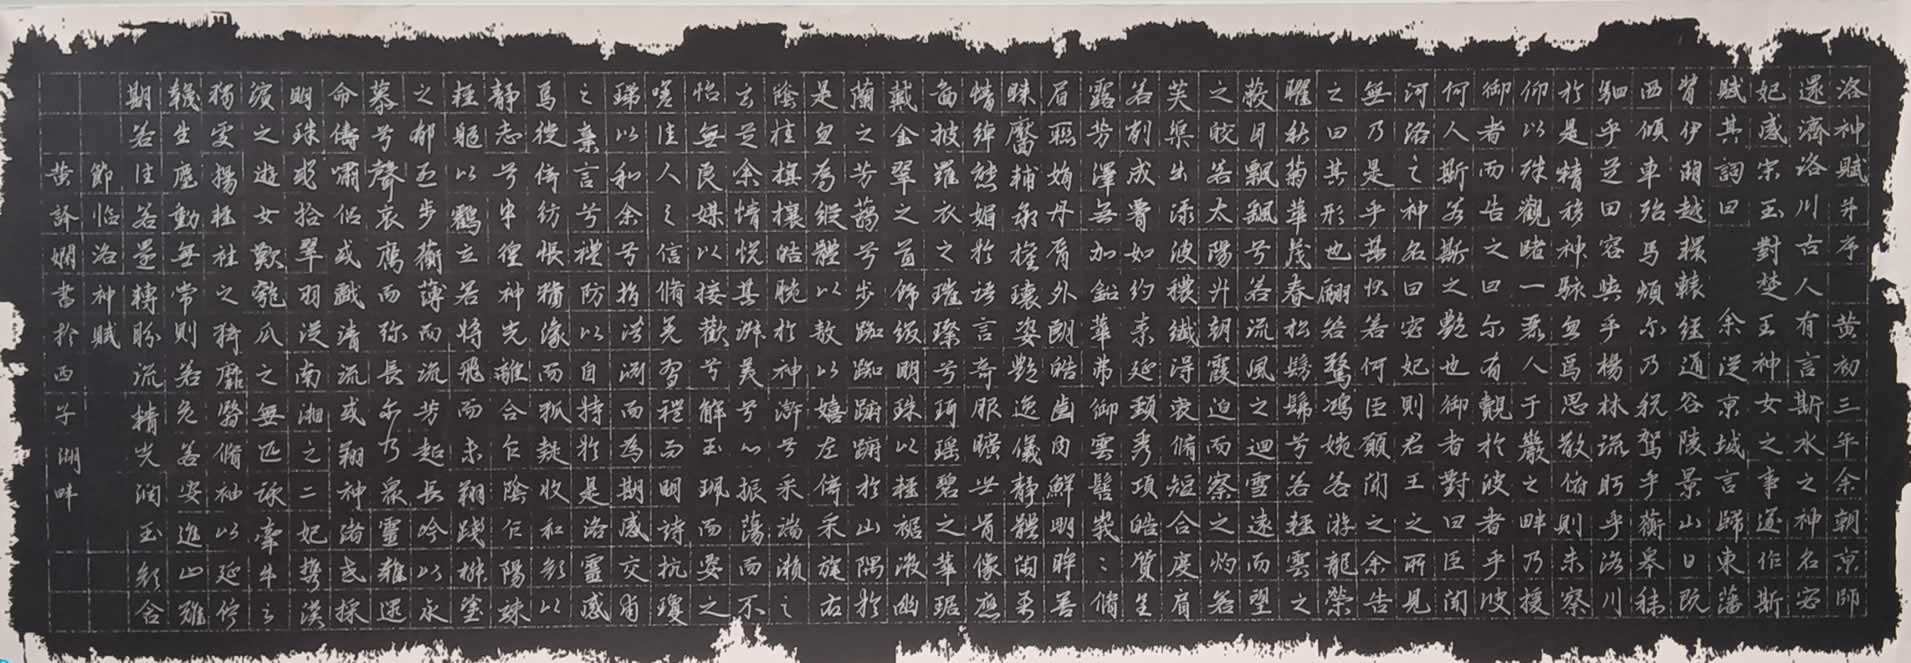 洛神賦并序 黄初三年余朝京師
還濟洛川古人有言斯水之神名宓
妃感宋玉對楚王神女之事遂作斯
賦其詞曰 余從京域言歸東藩
背伊闕越轘轅經通谷陵景山日既
西傾車殆馬煩尔乃税駕乎蘅皋秣
駟乎芝田容與乎楊林流眄乎洛川
於是精移神駭忽焉思散俯則未察
仰以殊觀睹一麗人于巖之畔乃援
御者而告之曰尔有覿於波者乎彼
何人斯若斯之艷也御者對曰臣聞
河洛之神名曰宓妃則君王之所見
無乃是乎其状若何臣願聞之余告
之曰其形也翩若驚鴻婉若游龍榮
曜秋菊華茂春松髣髴兮若輕雲之
蔽月飄飖兮若流風之迴雪遠而望
之皎若太陽升朝霞迫而察之灼若
芙蕖出渌波穠纖得衷脩短合度肩
若削成腰如約素延頸秀項皓質呈
露芳澤無加鉛華弗御雲髻峩〻脩
眉聯娟丹唇外朗皓齒内鮮明眸善
睐靨輔承權瓌姿艷逸儀静體閑柔
情綽態媚於語言奇服曠世骨像應
圖披羅衣之璀璨兮珥瑶碧之華琚
戴金翠之首飾綴明珠以輕裾微幽
蘭之芳藹兮步踟踟蹰蹰於山隅於
是忽焉縱體以敖以嬉左倚采旄右
蔭桂旗攘皓腕於神滸兮采湍瀨之
玄芝余情悦其淑美兮心振蕩而不
怡無良媒以接歡兮解玉珮而要之
嗟佳人之信脩羌習禮而明詩抗瓊
珶以和余兮指潜淵而為期感交甫
之棄言兮禮防以自持於是洛靈感
焉徙倚彷悵猶豫而狐疑收和顔以
静志兮申徨神光離合乍陰乍陽竦
輕軀以鶴立若將飛而未翔踐椒塗
之郁烈步蘅薄而流芳超長吟以永
慕兮聲哀厲而弥長尔乃衆靈雜遝
命儔嘯侣或戲清流或翔神渚或採
明珠或拾翠羽從南湘之二妃攜漢
濱之遊女歎匏瓜之無匹詠牽牛之
獨處揚輕袿之猗靡翳脩袖以延佇
幾生塵動無常則若危若安進止難
期若往若還轉眄流精光潤玉顔合
節临洛神賦
黄詠嫻書於西子湖畔